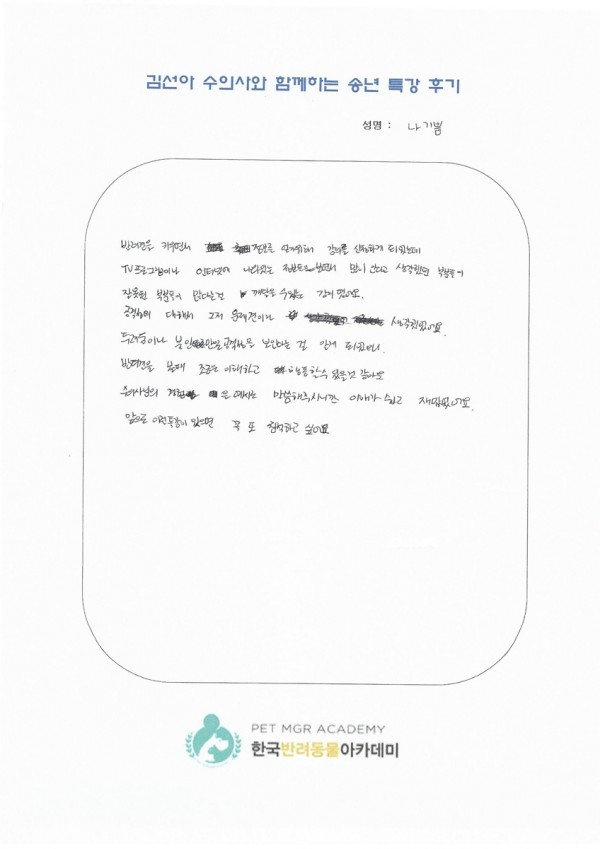 김선아 수의사와 함께하는 송년 특강 후기
성명 : 나기쁨
반려견을 키우면서 정보를 얻기위해 강의를 신청하게 되었는데
TV프로그램이나 인터넷에 나와있는 정보들을 보면서 많이 안다고 생각했던 부분들이
잘못된 부분들이 많다는걸 깨달을 수있는 강의 였어요.
공격성에 대해서 그저 문제견이라 생각했었어요.
두려움이나 불안 공격성을 보인다는 걸 알게 되었으니
반려견을 볼때 조금은 이해하고 행동할수 있을것 같아요
수의사님의 경험 은 예시로 말씀해주시니까 이해가 쉽고 재밌었어요.
앞으로 이런특강이 있으면 꼭 또 참석하고 싶어요
PET MGR ACADEMY
한국반려동물아카데미